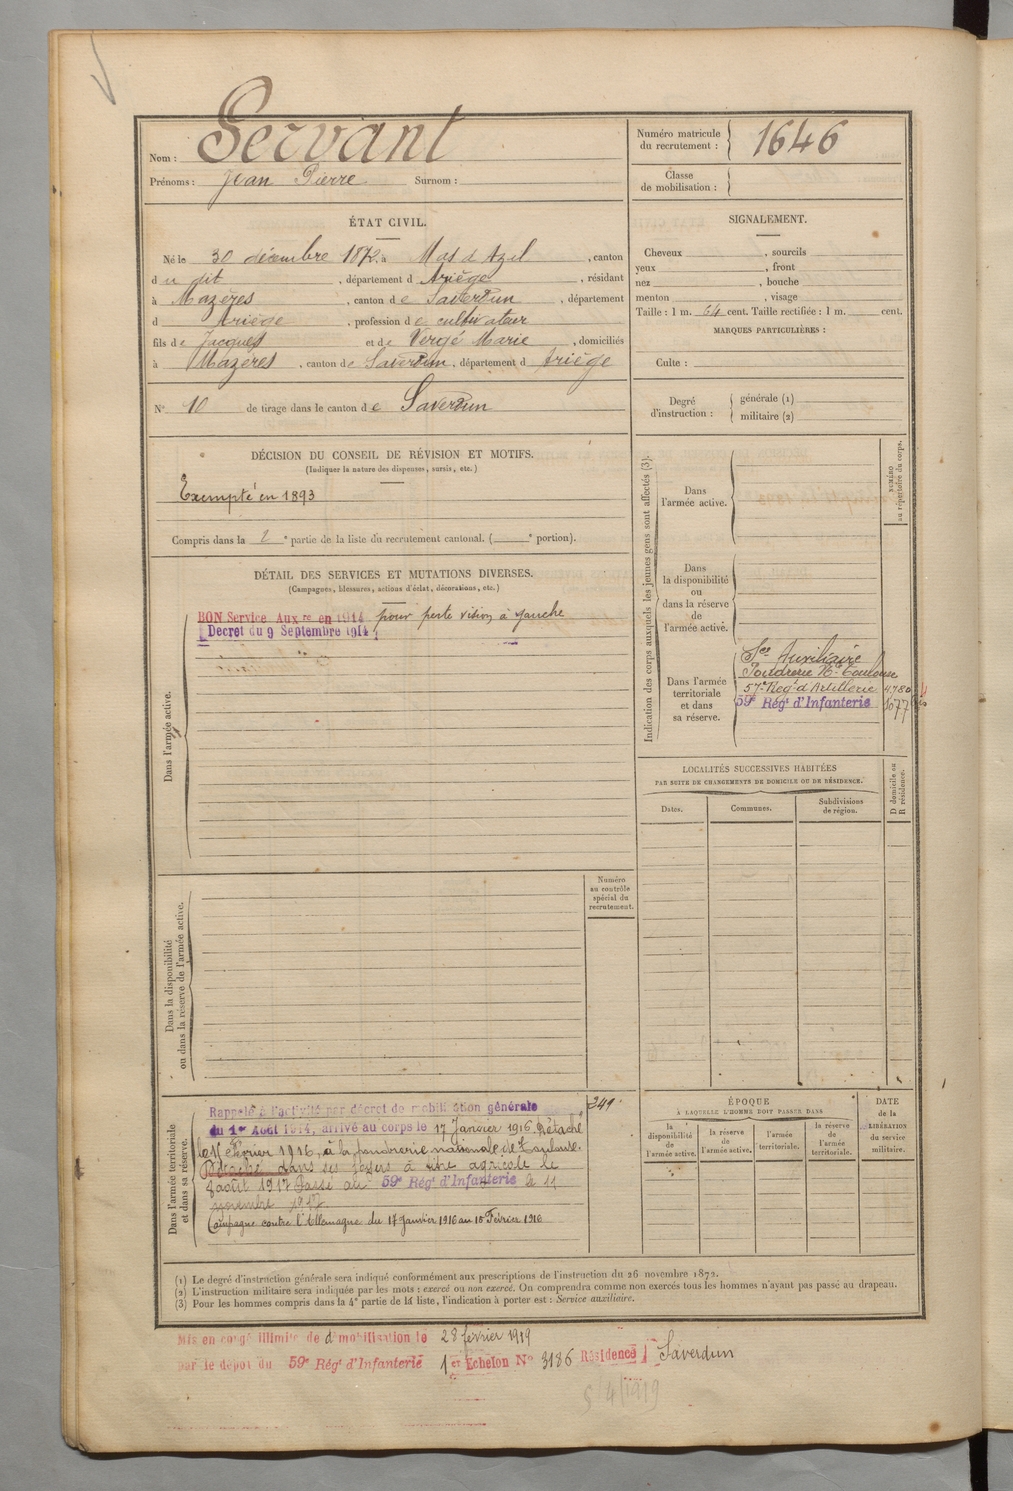 Nom : Servant
Prénoms : Jean Pierre Surnom :
Numéro matricule du recrutement : 1646
Classe de mobilisation :
ÉTAT CIVIL.
Né le 30 décembre 1872, à Mas d'Azil, canton
d u dit, département d Ariège, résidant
à Mazères, canton d e Saverdun, département
d Ariège, profession d e cultivateur
fils d e Jacques et d e Vergé Marie, domiciliés
à Mazères, canton d e Saverdun, département d Ariège
N° 10 de tirage dans le canton d e Saverdun
SIGNALEMENT.
Cheveux , sourcils
yeux , front
nez , bouche
menton , visage
Taille : 1 m. 64 cent. Taille rectifiée : 1 m. cent.
MARQUES PARTICULIÈRES :
Culte :
Degré d'instruction : générale (1)
militaire (2)
DÉCISION DU CONSEIL DE RÉVISION ET MOTIFS.
(Indiquer la nature des dispenses, sursis, etc.)
Exempté en 1893
Compris dans la 2e partie de la liste du recrutement cantonal. ( e portion).
DÉTAIL DES SERVICES ET MUTATIONS DIVERSES.
(Campagnes, blessures, actions d'éclat, décorations, etc.)
Dans l'armée active.
BON Service Aux re en 1914 pour perte vision à gauche
Decret du 9 Septembre 1914
Indication des corps auxquels les jeunes gens sont affectés (3).
NUMÉRO au répertoire du corps.
Dans l'armée active.
Dans la disponibilité ou dans la réserve de l'armée active.
Dans l'armée territoriale et dans sa réserve.
Sce Auxiliaire
Poudrerie Nle Toulouse
57e Reg. d'Artillerie 4780
59e Régt d'Infanterie
LOCALITÉS SUCCESSIVES HABITÉES
PAR SUITE DE CHANGEMENTS DE DOMICILE OU DE RÉSIDENCE.
Dates.
Communes.
Subdivisions de région.
D domicile ou R résidence.
Dans la disponibilité ou dans la réserve de l'armée active.
Numéro au contrôle spécial du recrutement.
Dans l'armée territoriale et dans sa réserve.
Rappelé à l'activité par décret de mobilisation générale
du 1er Août 1914, arrivé au corps le 17 Janvier 1916. Détaché
le 11 Février 1916, à la poudrerie nationale de Toulouse.
Détaché dans ses foyers à titre agricole le
8 août 1917 Passé au 59e Régt d'Infanterie le 11
novembre 1917.
Campagne contre l'Allemagne du 17 Janvier 1916 au 10 Février 1916
241
ÉPOQUE
À LAQUELLE L'HOMME DOIT PASSER DANS
la disponibilité de l'armée active.
la réserve de l'armée active.
l'armée territoriale.
la réserve de l'armée territoriale.
DATE de la LIBÉRATION du service militaire.
(1) Le degré d'instruction générale sera indiqué conformément aux prescriptions de l'instruction du 26 novembre 1872.
(2) L'instruction militaire sera indiquée par les mots : exercé ou non exercé. On comprendra comme non exercés tous les hommes n'ayant pas passé au drapeau.
(3) Pour les hommes compris dans la 4e partie de la liste, l'indication à porter est : Service auxiliaire.
Mis en congé illimité de démobilisation le 28 février 1919
par le dépôt du 59e Régt d'Infanterie 1er Echelon N° 3186 Résidence Saverdun
5/4/1919